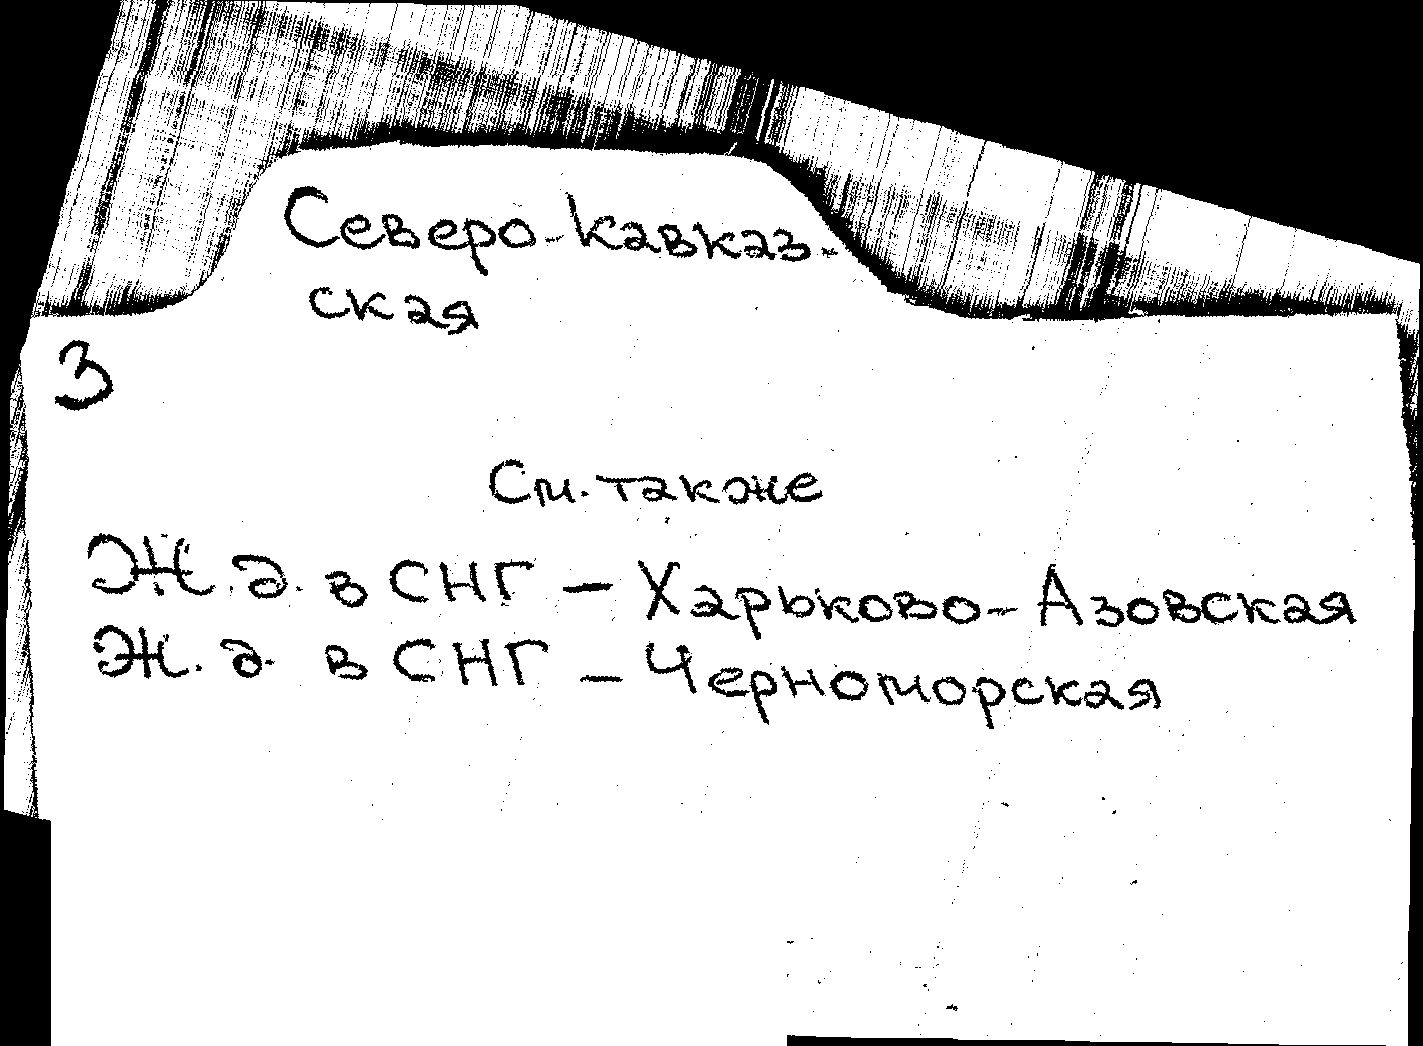 Северо-Кавказ-
ская
3
См. также
Ж.д. в СНГ – Харьково-Азовская
Ж.д. в СНГ – Черноморская